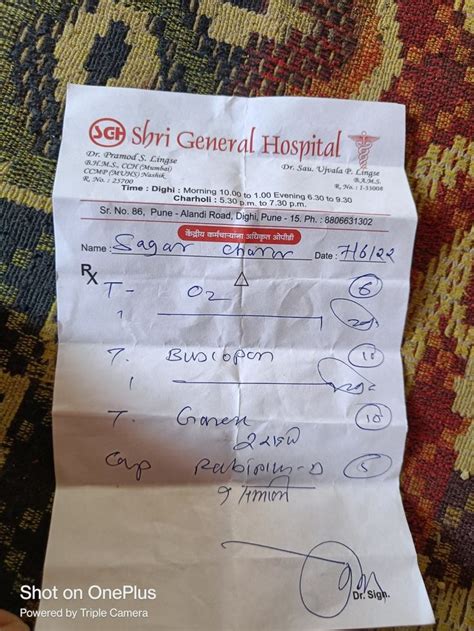 SGH Shri General Hospital
Dr. Pramod S. Lingse
B.H.M.S., CCH (Mumbai)
CCMP (MUHS) Nashik
R. No. : 25700
Dr. Sau. Ujvala P. Lingse
B.A.M.S.
R. No. : I-53008
Time : Dighi : Morning 10.00 to 1.00 Evening 6.30 to 9.30
Charholi : 5.30 p.m. to 7.30 p.m.
Sr. No. 86, Pune - Alandi Road, Dighi, Pune - 15. Ph. : 8806631302
केंद्रीय कर्मचाऱ्यांना अधिकृत ओपीडी
Name : Sagar Date : 7/6/22
Rx
T - O2 6
1
T. Buscopan 10
1
T. 10
Cap 5
Dr. Sign.
Shot on OnePlus
Powered by Triple Camera